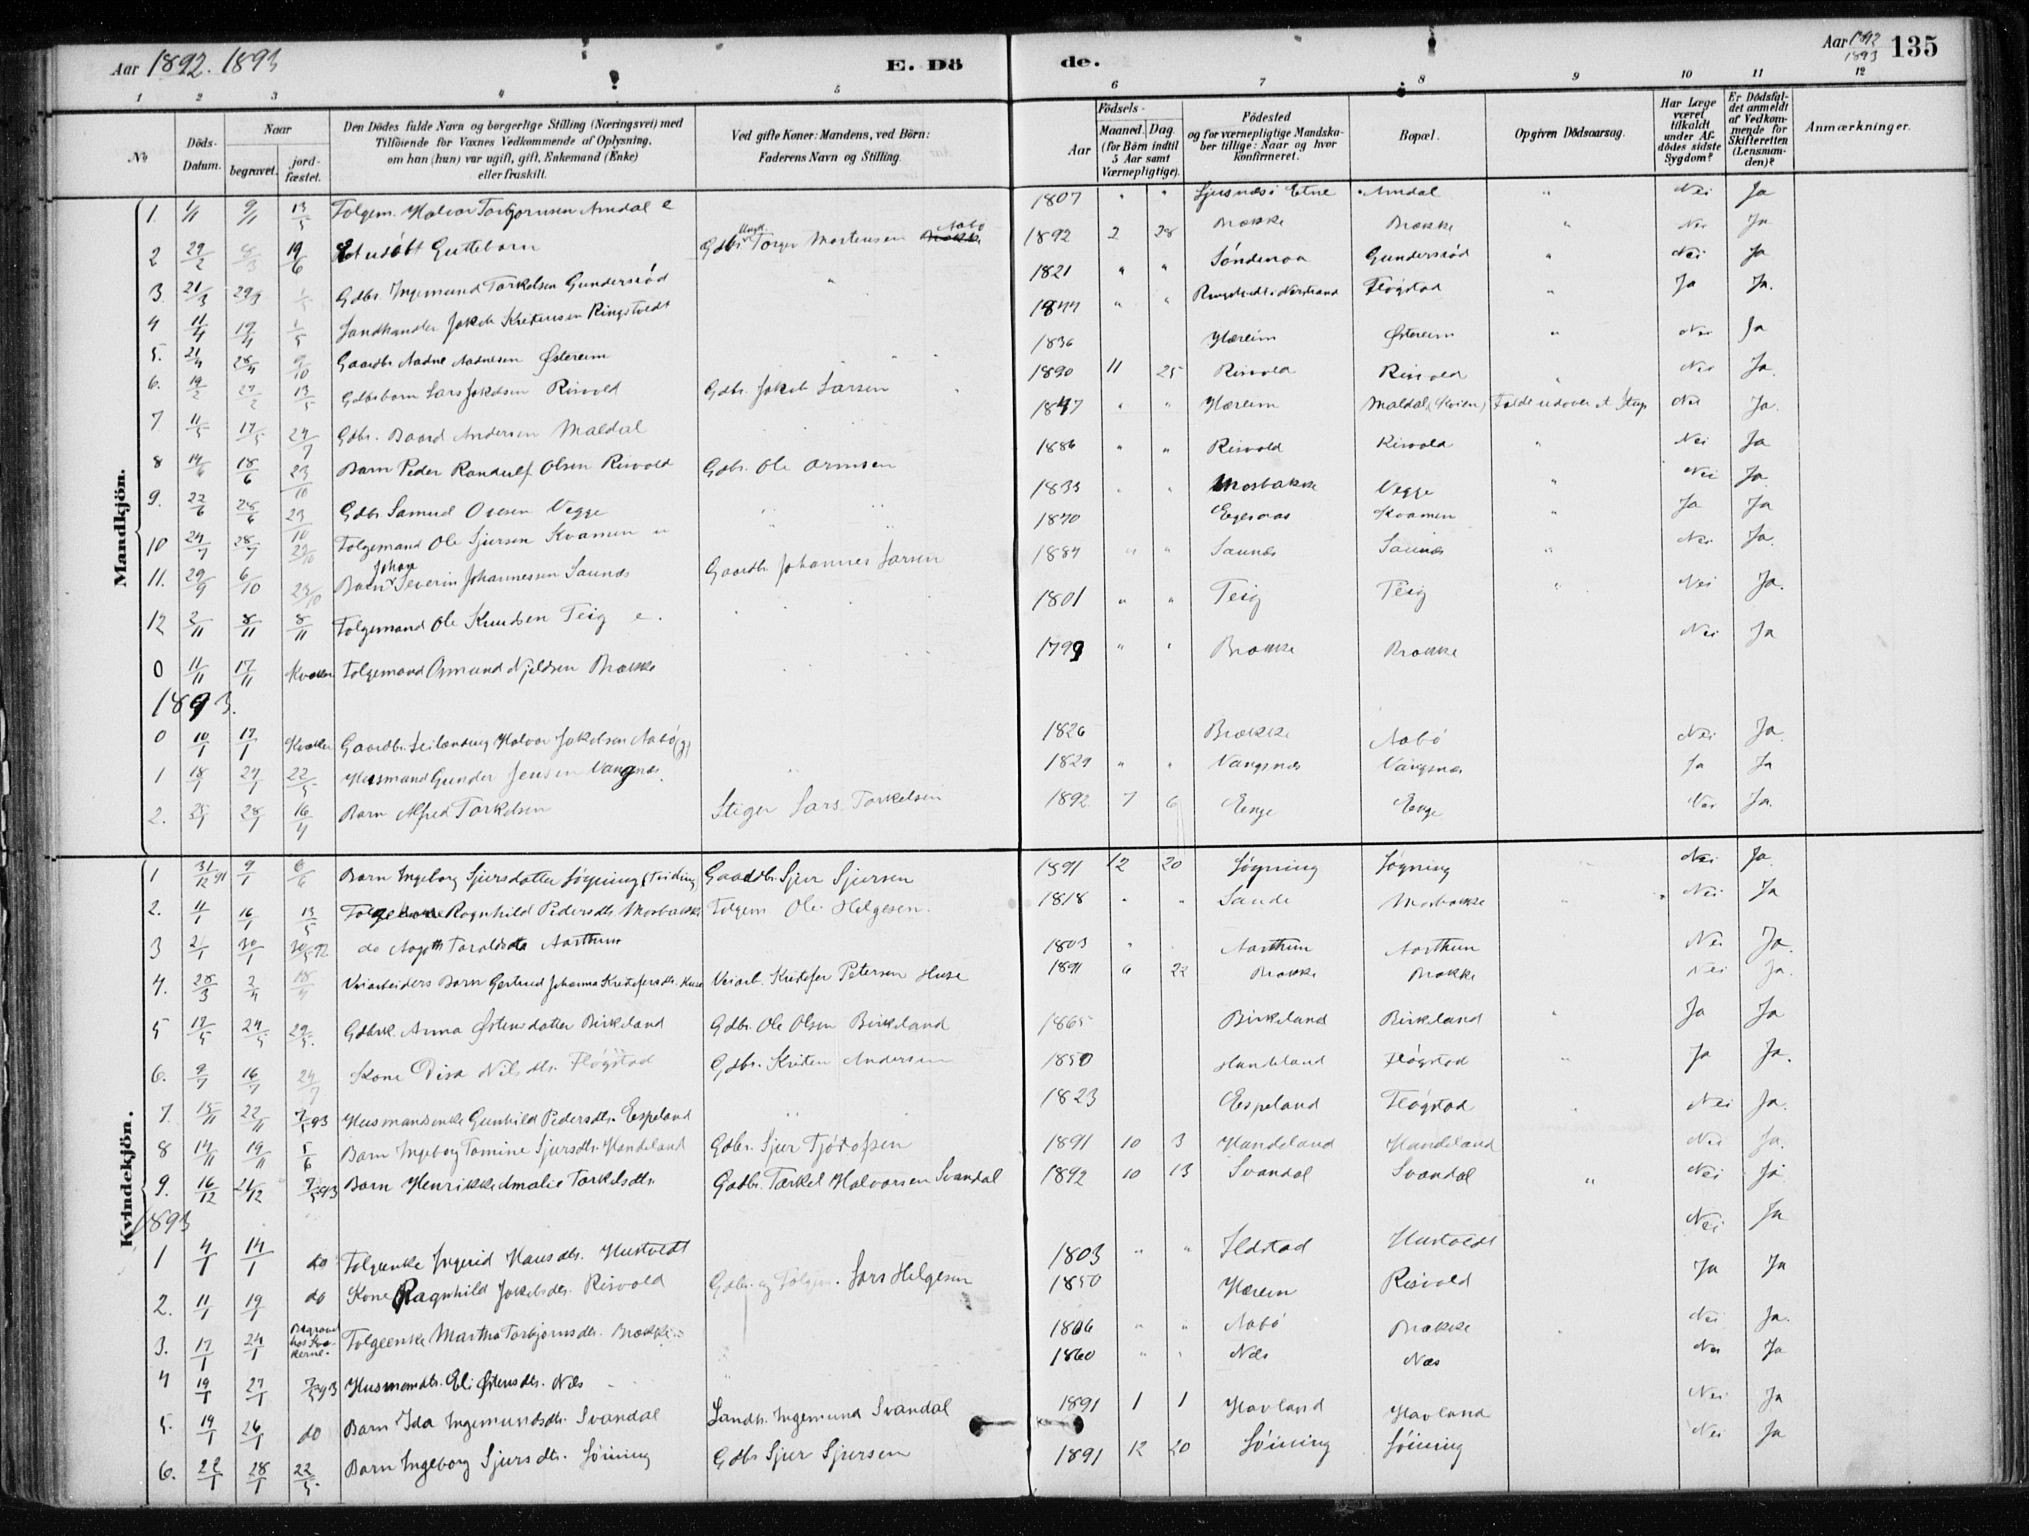 Aar 1892. 1893 E. Döde. Aar 1892 1893 135
1 2 3 4 5 6 7 8 9 10 11 12
No Döds-Datum. Naar begravet. jordfæstet. Den Dödes fulde Navn og borgerlige Stilling (Næringsvei) med Tilföiende for Voxnes Vedkommende af Oplysning, om han (hun) var ugift, gift, Enkemand (Enke) eller fraskilt. Ved gifte Koner: Mandens, ved Börn: Faderens Navn og Stilling. Födsels- Aar Maaned. Dag. (for Börn indtil 5 Aar samt Værnepligtige). Födested og for værnepligtige Mandskaber tillige: Naar og hvor konfirmeret. Bopæl. Opgiven Dödsaarsag. Har Læge været tilkaldt under Afdödes sidste Sygdom? Er Dödsfaldet anmeldt af Vedkommende for Skifteretten (Lensmanden)? Anmærkninger.
Mandkjön.
1. 1/11 9/11 13/5 Folgem. Halvor Torbjornsen Arndal e 1807 " " Etne Arndal " Nei Ja
2 29/2 19/6 Et udöbt Guttebarn Gdbr. Torger Mortensen Aabö 1892 2 28 Brække Brække " Nei Ja
3 21/3 29/3 Gdbr. Ingemund Torkelsen Gundersröd " 1821 " " Söndenaa Gundersröd " Nei Ja
4 11/4 19/4 1/5 Landhandler Jakob Kristensen Ringstvedt 1844 " " Nerstrand Flögstad " Ja Ja.
5. 21/4 28/4 9/10 Gaardbr. Aadne Aadnesen Östereim 1836 Hæreim Östereim " Nei Ja
6. 19/2 27/2 13/5 Gdbrbarn Lars Jakobsen Risvold Gdbr. Jakob Larsen 1890 11 25 Risvold Risvold " Nei Ja.
7 11/5 17/5 24/7 Gdbr. Baard Andersen Maldal 1847 " " Hæreim Maldal (Kvien) Faldt udover et Stup Nei Ja.
8 14/6 18/6 23/10 Barn Peder Randulf Olsen Risvold Gdbr. Ole Ormsen 1886 " " Risvold Risvold " Nei Ja
9. 22/6 28/6 23/10 Gdbr Samuel Ovesen Vegge 1833 " " Mosbakke Vegge " Nei Ja
10 24/7 28/7 29/10 Folgemand Ole Sjursen Kvamen 1840 Kvamen " Ja Ja
11. 29/9 6/10 23/10 Barn Johan Severin Johannessen Saunæs Gaardbr. Johannes Larsen 1884 " " Saunæs Saunæs " Nei Ja.
12 2/11 8/11 8/11 Folgemand Ole Knudsen Teig e. 1801 " " Teig Teig " Nei Ja.
0 11/11 17/11 Kvæker Folgemand Osmund Brække 1799 " " Brække Brække Nei Ja
1893.
0 10/1 17/1 Kvæker Gaardbr. Leilænding Halvor Jakobsen Aabö (g) 1826 Brække Aabö Nei Ja.
1 18/1 24/1 22/5 Husmand Gunder Jensen Vangsnæs. 1829 " " Vangsnæs Vangsnæs Ja Ja
2. 25/1 28/1 16/4 Barn Alfred Torkelsen Stiger Lars Torkelsen 1892 7 6 Eenge Eenge Nei Ja.
Kvindekjön.
1 31/12 91 9/1 6/6 Barn Ingeborg Sjursdatter Söyning (tviding) Gaardbr. Sjur Sjursen 1891 12 20 Söyning Söyning Nei Ja
2. 11/1 16/1 13/5 Folgekone Ragnhild Pedersdtr. Mosbakke Folgem. Ole Helgesen. 1818 " " Sande Mosbakke " Nei Ja
3 21/1 30/1 do Aagoth Taraldsdtr Aarthun 1803 " Aarthun Aarthun Nei Ja.
4. 28/3 2/4 18/4 Veiarbeiders Barn Gertrud Johanna Kristofersdtr. Huse Veiarb. Kristofer Petersen Huse 1891 6 22 Brække Brække Nei Ja.
5 17/5 24/5 29/5. Gdbrk. Anna Östensdatter Birkeland Gdbr. Ole Olsen Birkeland 1865 Birkeland Birkeland " Ja Ja
6. 9/7 16/7 24/7 Kone Disa Nilsdtr. Flögstad Gdbr. Kristen Andersen 1850 Handeland Flögstad " Ja Ja.
7. 15/11 22/11 7/5 93 Husmandsenke Gunhild Pedersdtr. Espeland 1823 Espeland Flögstad Nei Ja.
8 14/11 19/11 5/6 Barn Ingeborg Tomine Sjursdtr. Handeland Gdbr. Sjur Tjötofsen 1891 10 3 Handeland Handeland Nei Ja.
9. 16/12 21/12 7/5 93 Barn Henrikke Amalie Torkelsdtr. Gadbr. Torkel Halvorsen Svandal 1892 10 13 Svandal Svandal " Nei Ja
1893
1 4/1 14/1 do Folgeenke Ingerid Hansdtr. Hustvedt 1803 " " Ilstad Hustvedt Nei Ja
2. 11/1 19/1 do Kone Ragnhild Jakobsdtr. Risvold Gdbr. og Folgem. Lars Helgesen 1850 Hæreim Risvold Ja Ja
3. 17/1 24/1 Begravet hos Kvækerne. Folgeenke Martha Torbjörnsdtr. Brække. 1806 " " Aabö Brække Nei Ja.
4 19/1 27/1 7/5 93 Husmandtr. Eli Östensdtr. Næs 1860 " " Næs Næs Nei Ja
5. 19/1 26/1 do Barn Ida Ingemundsdtr. Svandal Landh. Ingemund Svandal 1891 1 1 Havland Havland Nei Ja
6. 22/1 28/1 22/5 Barn Ingeborg Sjursdtr. Söining Gdbr Sjur Sjursen 1891 12 20 Söining Söining Nei Ja